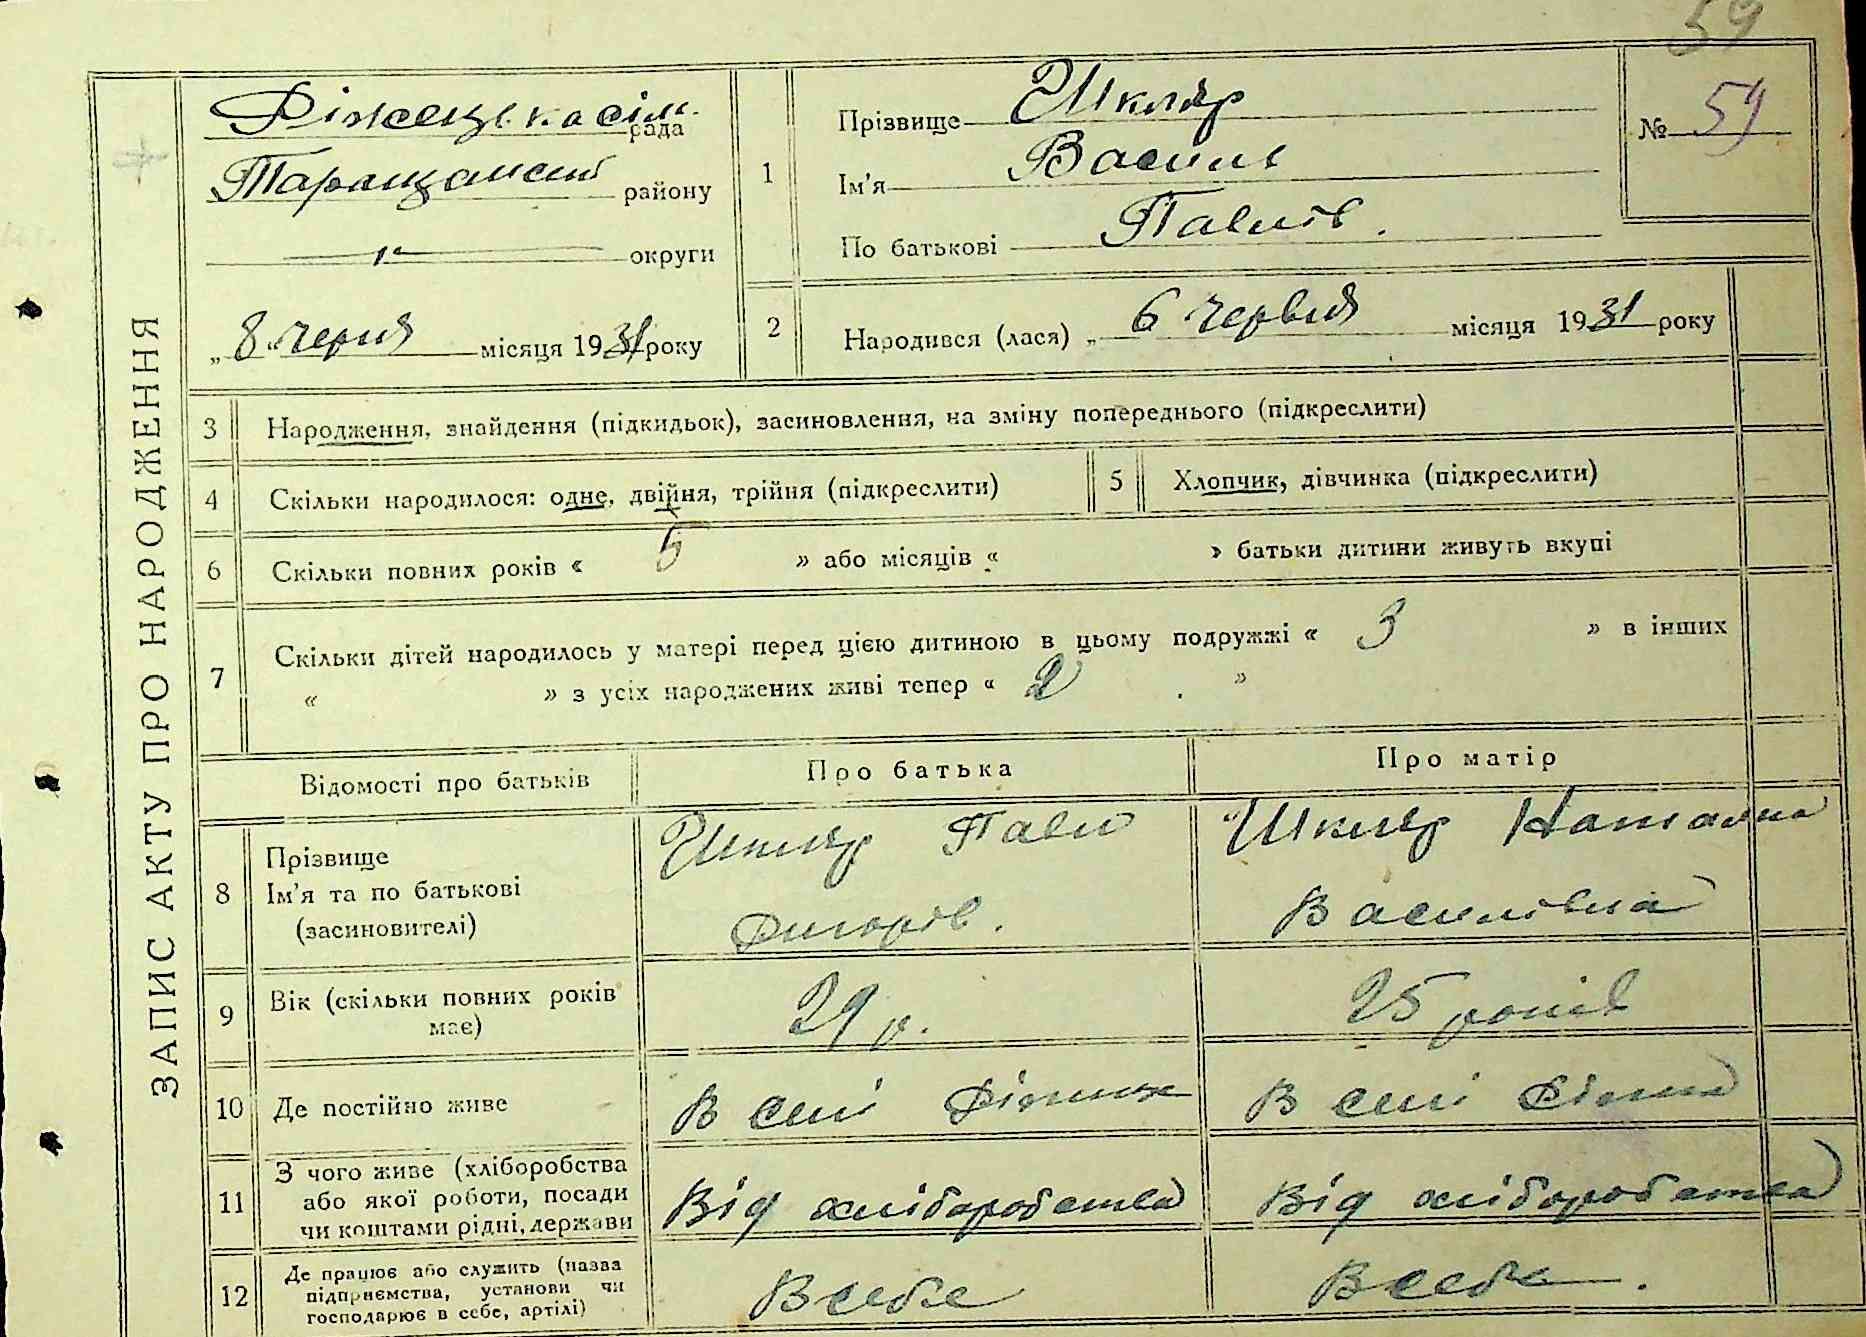 59
ЗАПИС АКТУ ПРО НАРОДЖЕННЯ
рада
Таращанськ району
округи
„8“ черня місяця 1931 року
1
Прізвище Шкляр
Ім'я Василь
По батькові Павлів.
№ 59
2 Народився (лася) „ 6 червня місяця 1931 року
3 Народження, знайдення (підкидьок), засиновлення, на зміну попереднього (підкреслити)
4 Скільки народилося: одне, двійня, трійня (підкреслити)
5 Хлопчик, дівчинка (підкреслити)
6 Скільки повних років « 5 » або місяців « » батьки дитини живуть вкупі
7 Скільки дітей народилось у матері перед цією дитиною в цьому подружжі « 3 » в інших
« » з усіх народжених живі тепер « 2 »
Відомості про батьків
Про батька
Про матір
8 Прізвище
Ім'я та по батькові
(засиновителі)
Шкляр Павло
Шкляр Наталка
Василівна
9 Вік (скільки повних років
має)
29 р.
25 років
10 Де постійно живе
В селі
В селі
11 З чого живе (хліборобства
або якої роботи, посади
чи коштами рідні, держави
Від хліборобства
Від хліборобства
12 Де працює або служить (назва
підприємства, установи чи
господарює в себе, артілі)
В себе
В себе.